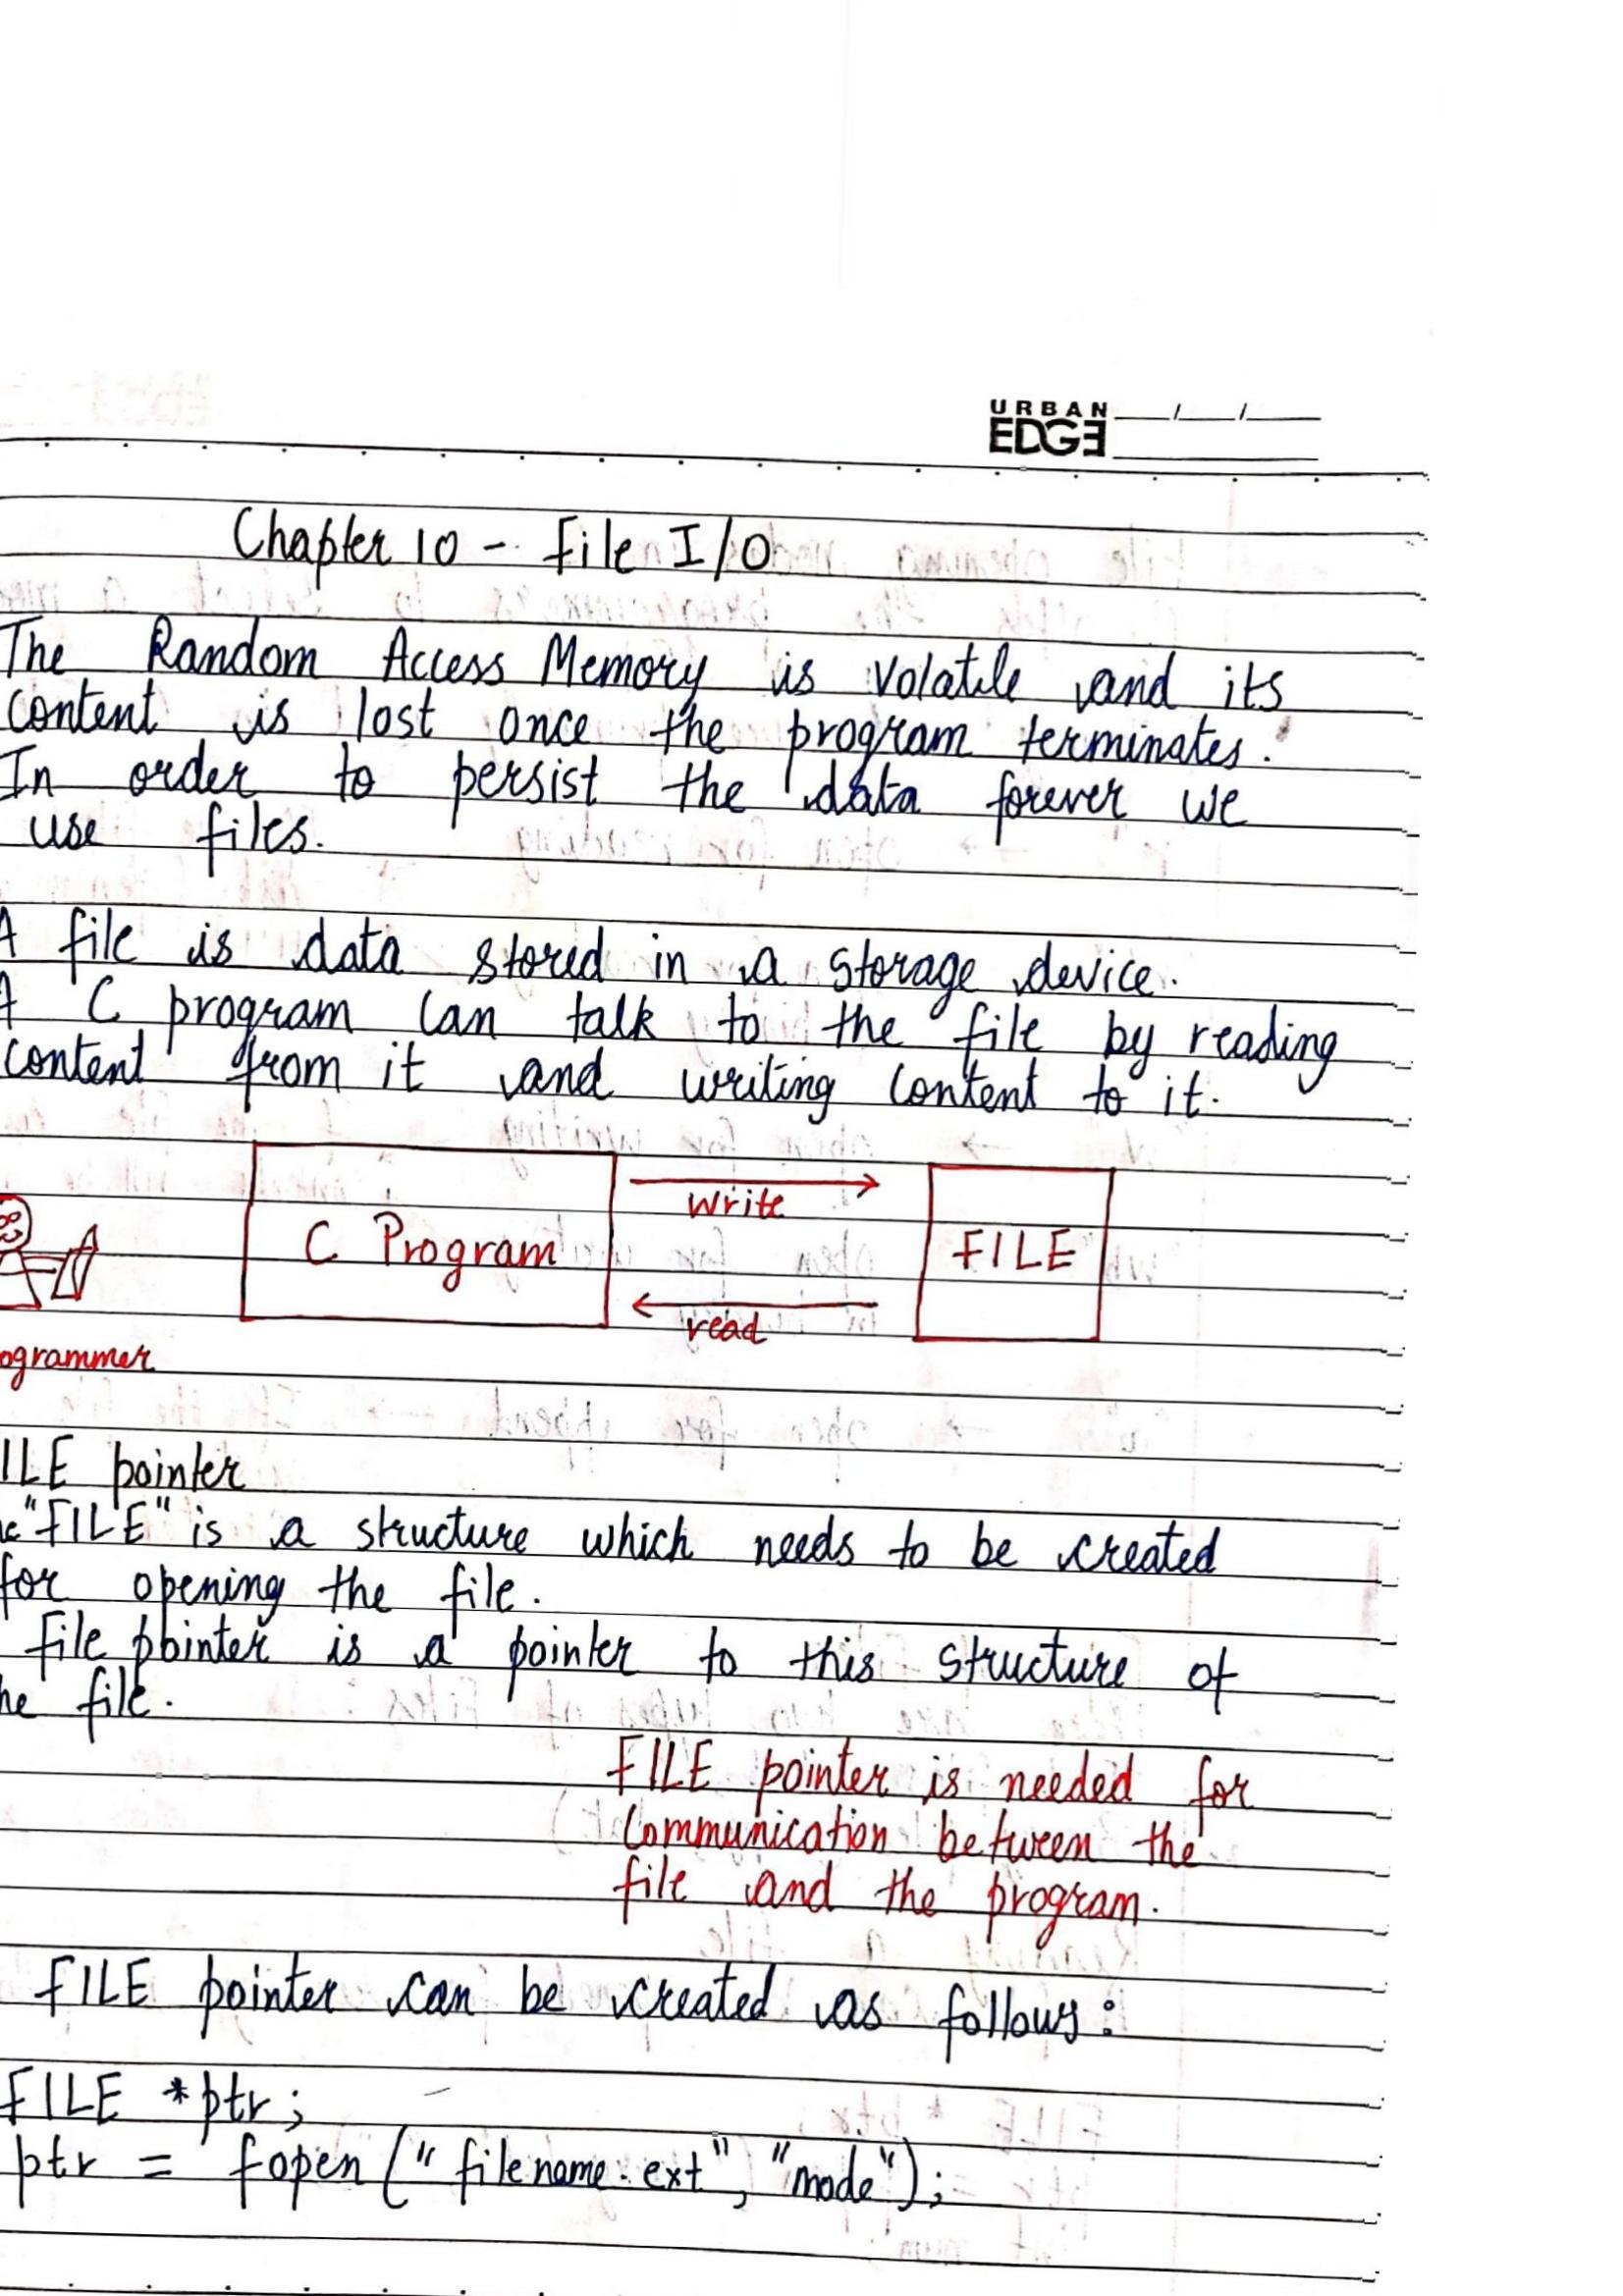 URBAN
EDGE
Chapter 10 - File I/O
The Random Access Memory is volatile and its
content is lost once the program terminates.
In order to persist the data forever we
use files.
A file is data stored in a storage device.
A C program can talk to the file by reading
content from it and writing content to it.
C Program
write
FILE
read
ogrammer
ILE pointer
"FILE" is a structure which needs to be created
for opening the file.
file pointer is a pointer to this structure of
he file.
FILE pointer is needed for
communication between the
file and the program.
FILE pointer can be created as follows:
FILE *ptr;
ptr = fopen("filename.ext", "mode");